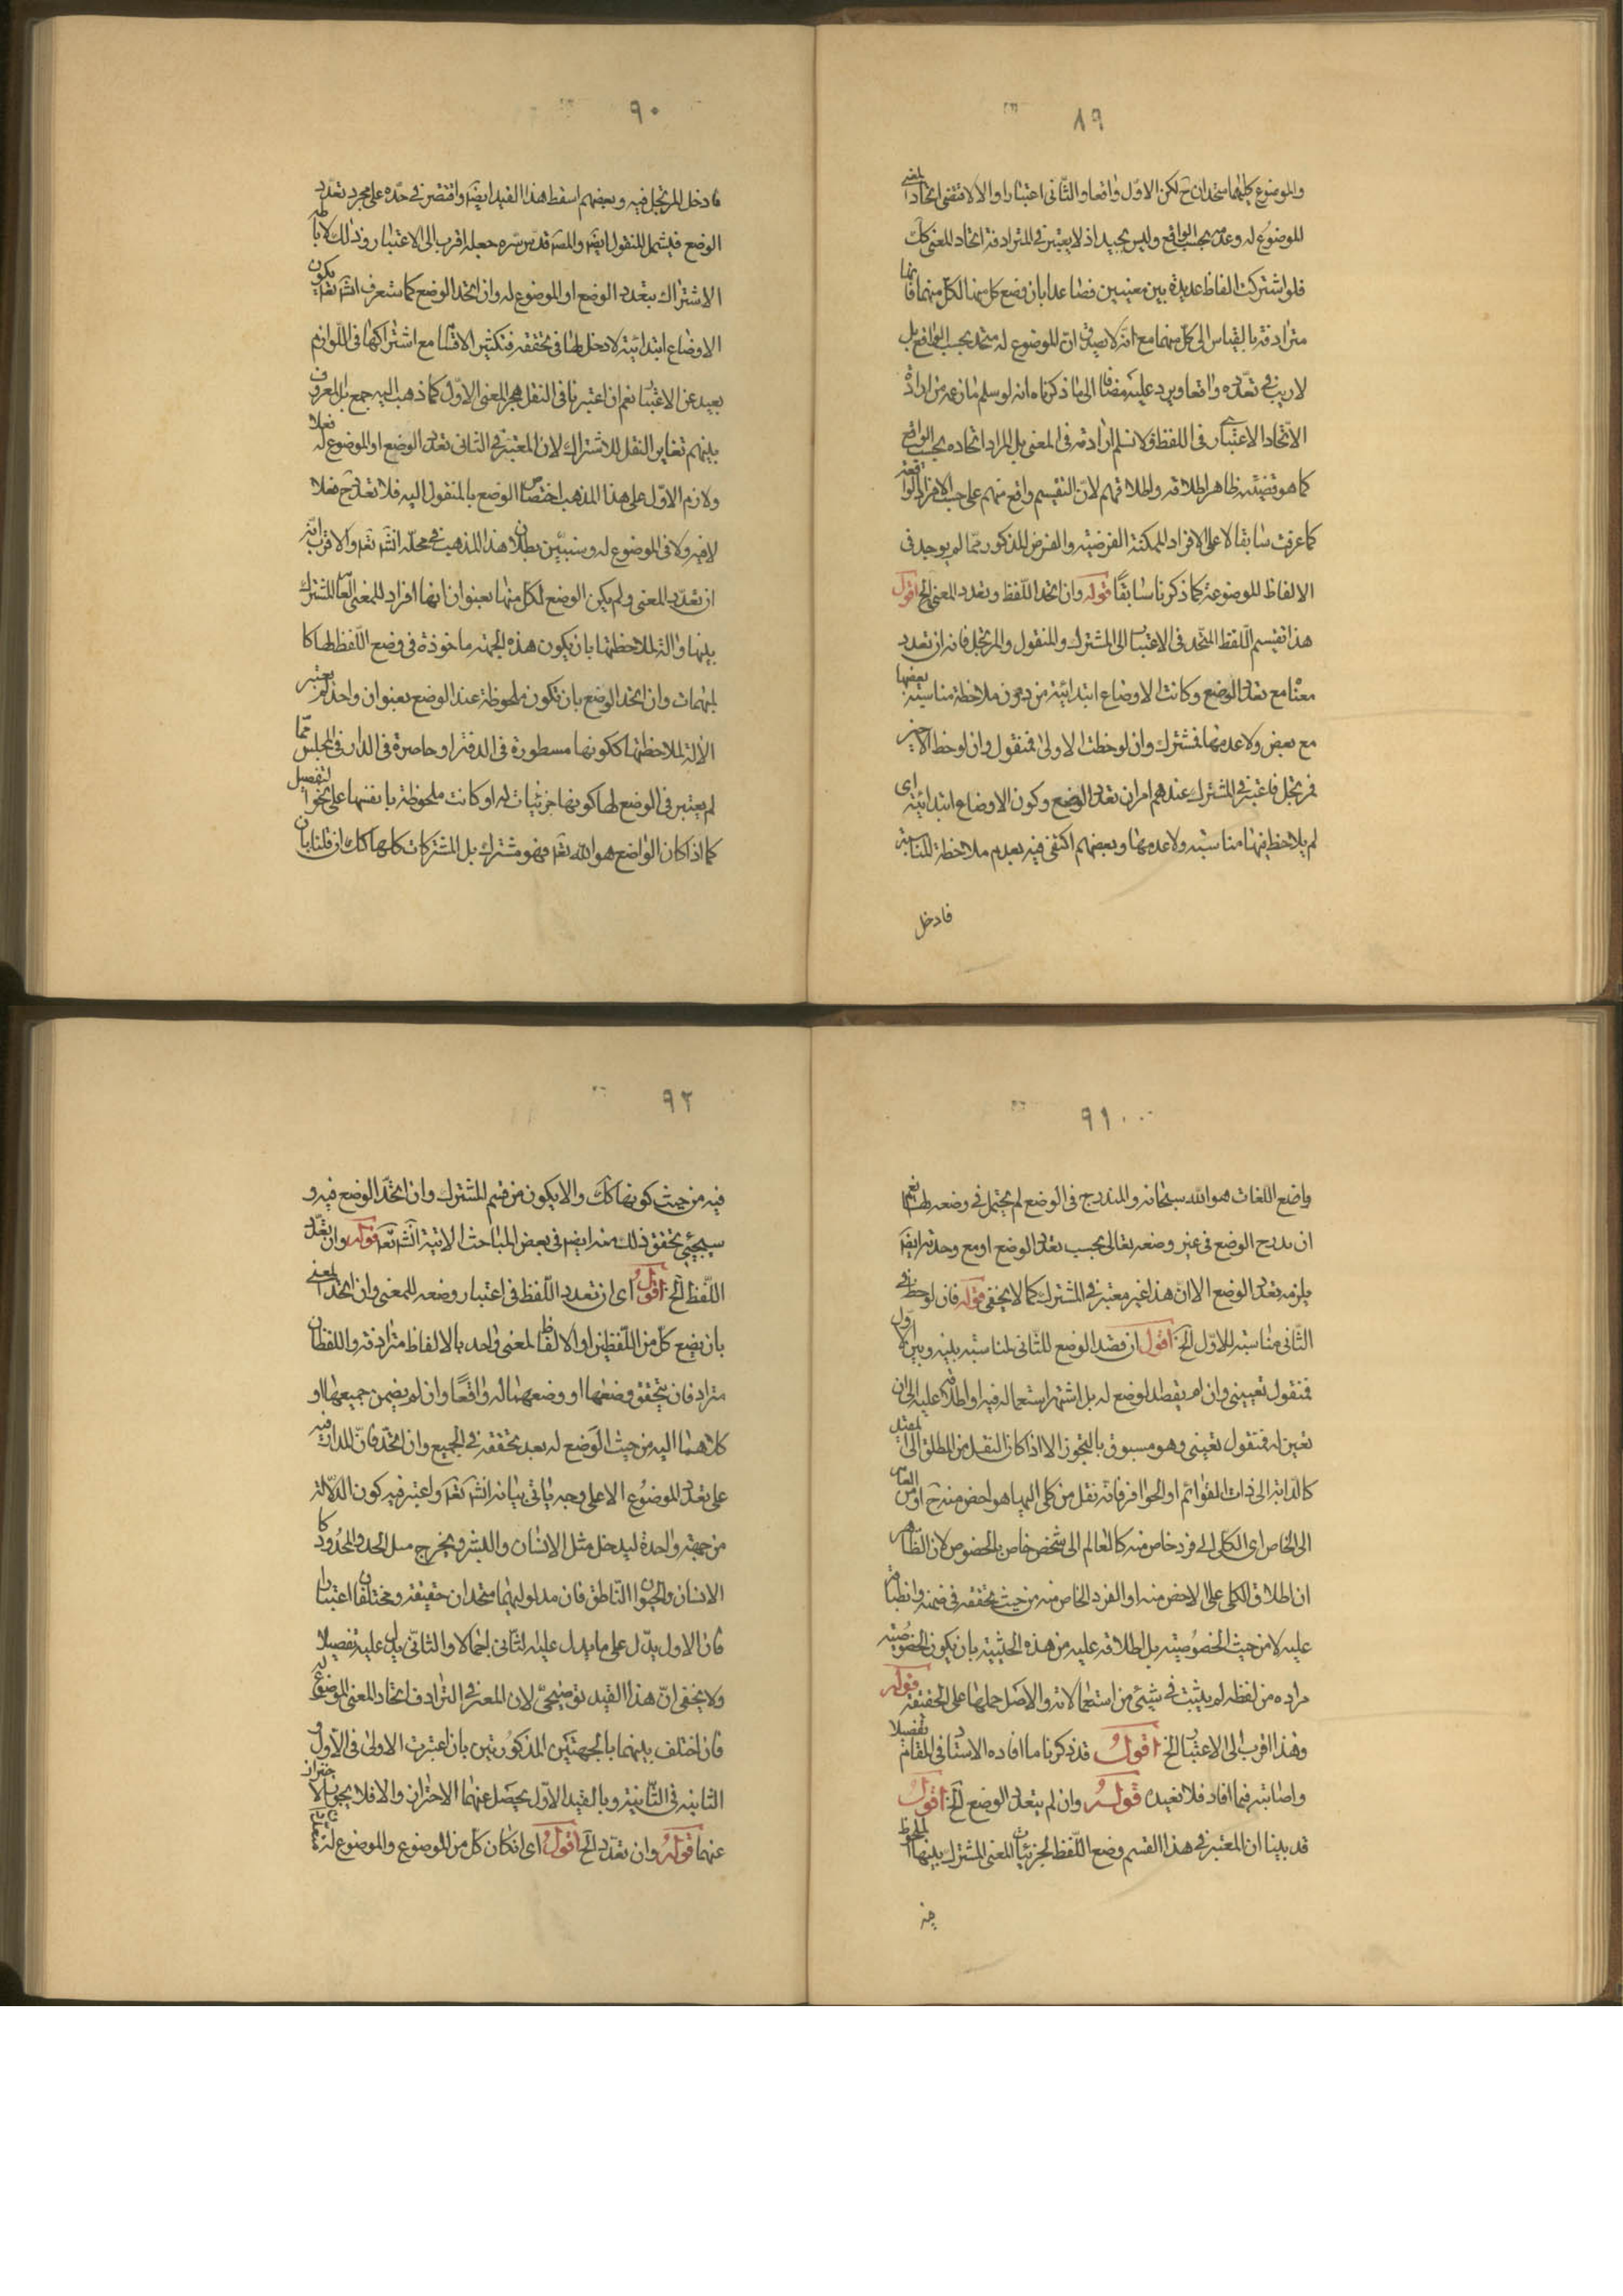 ٨٩
والموضوع كلیهما متحدان ح لكن الاوّل واقعا والثّانی اعتبارا والا لاقتضی اتحاد المعنی
الموضوع له وعدمه بحسب الواقع ولیس بجید اذ لا یعتبر فی المترادفة اتحاد المعنی كك
فلو اشتركت الفاظ عدیدة بین معنیین فضاعدا بان وضع كل منها لكلّ منهما فانها
مترادفة بالقیاس الی كلّ منهما مع انّه لا یصدق انّ الموضوع له متحد بحسب الواقع بل
لا ریب فی تعدّده واقعا ویرد علیه مضافا الی ما ذكرناه انه لو سلم ما زعمه من ارادة
الاتّحاد الاعتباری فی اللفظ فلا نسلم ارادته فی المعنی بل المراد اتحاده بحسب الواقع
كما هو قضیّة ظاهر اطلاقه واطلاقهم لانّ التقسیم واقع منهم علی حسب الافراد الواقعیّة
كما عرفت سابقا لا علی الافراد الممكنة الفرضیة والفرض المذكور ممّا لم یوجد فی
الالفاظ الموضوعة كما ذكرنا سابقًا قوله وان اتحد اللّفظ وتعدد المعنی الخ اقول
هذا تقسیم اللّفظ المتّحد فی الاعتبار الی المشترك والمنقول والمرتجل فانه ان تعدد
معناه مع تعدد الوضع وكانت الاوضاع ابتدائیة من دون ملاحظة مناسبة بعضها
مع بعض ولا عدمها فمشترك وان لوحظت الاولی فمنقول وان لوحظ الاخیر
فمرتجل فاعتبر فی المشترك عندهم امران تعدد الوضع وكون الاوضاع ابتدائیة ای
لم یلاحظ فیها مناسبة ولا عدمها وبعضهم اكتفی فیه بعدم ملاحظة المناسبة
فادخل
٩٠
فادخل المرتجل فیه وبعضهم اسقط هذا القید ایضا واقتصر فی حدّه علی مجرد تعدّد
الوضع فیشمل المنقول ایضا والمصنف قدّس سرّه جعله اقرب الی الاعتبار وذلك لاناطة
الاشتراك بتعدد الوضع او الموضوع له وان اتحد الوضع كما ستعرف انشاء تعالی ویكون
الاوضاع ابتدائیّة لا دخل لها فی تحققه فتكثیر الاقسام مع اشتراكها فی اللّوازم
بعید عن الاعتبار نعم ان اعتبرنا فی النقل هجر المعنی الاوّل كما ذهب الیه جمع بل المعروف
بینهم تغایر النقل للاشتراك لان المعتبر فی الثانی تعدد الوضع او الموضوع له فعلا
ولازم الاوّل علی هذا المذهب اختصاص الوضع بالمنقول الیه فلا تعدد ح فعلا
لا فیه ولا فی الموضوع له وسنبیّن بطلان هذا المذهب فی محلّه انشاء تعالی والاقرب انّه
ان تعدّد المعنی ولم یكن الوضع لكل منها بعنوان انها افراد للمعنی العام المشترك
بینها والة لملاحظتها بان یكون هذه الجهة ماخوذة فی وضع اللّفظ لها كا
لمبهمات وان اتحد الوضع بان تكون ملحوظة عند الوضع بعنوان واحد لم یعتبر
الا لة لملاحظتها ككونها مسطورة فی الدفتر او حاضرة فی الدار فی المجلس ممّا
لم یعتبر فی الوضع لها كونها جزئیات له او كانت ملحوظة بانفسها علی نحو التفصیل
كما اذا كان الواضع هو الله تعالی فهو مشترك بل المشتركات كلها كك ان قلنا بان
٩١
واضع اللّغات هو الله سبحانه والتدریج فی الوضع لم یحتمل فی وضعه لها نعم
ان تدرج الوضع فی غیر وضعه تعالی بحسب تعدد الوضع او مع وحدته ایضا
یلزمه تعدد الوضع الا انّ هذا غیر معتبر فی المشترك كما لا یخفی قوله فان لوحظ فی
الثّانی مناسبته للاوّل الخ اقول ان قصد الوضع للثّانی لمناسبة بینه وبین الاوّل
فمنقول تعیینی وان لم یقصد الوضع له بل اشتهر استعماله فیه او اطلاقه علیه الی ان
تعین له فمنقول تعینی وهو مسبوق بالتجوز الا اذا كان النقل من المطلق الی المقید
كالدّابة الی ذات القوائم او الحوافر فانّه نقل من كلی الی ما هو اخص منه ح او من العام
الی الخاص ای الكلی الی فرد خاص منه كالعالم الی شخص خاص بالخصوص لان الظّاهر
ان اطلاق الكلی علی الاخص منه او الفرد الخاص منه من حیث تحققه فی ضمنه وانطباقه
علیه لا من حیث الخصوصیّة بل اطلاقه علیه من هذه الحیثیة بان یكون الخصوصیّة
مراده من لفظه لم یثبت فی شیئ من استعمالاته والاصل حملها علی الحقیقة قوله
وهذا اقرب الی الاعتبار الخ اقول قد ذكرنا ما افاده الاستاد فی المقام تفصیلا
واصابته فیما افاد فلا نعیده قوله وان لم یتعدد الوضع الخ اقول
قد بینا ان المعتبر فی هذا القسم وضع اللّفظ لجزئیّات المعنی المشترك بینها الملحوظ
فیه
٩٢
فیه من حیث كونها كك والا یكون من قسم المشترك وان اتحد الوضع فیه و
سیجیئ تحقق ذلك منه ایضا فی بعض المباحث الاتیة انشاء تعالی قوله وان تعدّد
اللّفظ الخ اقول ای ان تعدد اللّفظ فی اعتبار وضعه للمعنی وان اتحد المعنی
بان یضع كلّ من اللّفظین او الالفاظ لمعنی واحد بالالفاظ مترادفة واللفظان
مترادفان یتحقق وضعها او وضعهما له واقعًا وان لم یضمن جمیعها او
كلاهما الیه من حیث الوضع له بعد تحققه فی الجمیع وان اتحد فانّ المدار فیه
علی تعدد الموضوع الا علی وجه یاتی بیانه انشاء تعالی واعتبر فیه كون الدّلالة
من جهة واحدة لیدخل مثل الانسان والبشر ویخرج مثل الحد والمحدود كا
الانسان والحیوان النّاطق فان مدلولیهما متحدان حقیقة ومختلفان اعتبارا
فان الاول یدّل علی ما یدل علیه الثانی اجمالا والثانی یدل علیه تفصیلا
ولا یخفی انّ هذا القید توضیحیّ لان المعتبر فی الترادف اتحاد المعنی الموضوع له
فان اختلف بینهما بالجهتین المذكورتین بان اعتبرت الاولی فی الاول و
الثانیة فی الثّانیة وبالقید الاوّل یحصل عنهما الاحتراز والا فلا یجوز الاحتراز
عنهما قوله وان تعدّد الخ اقول ای ان كان كل من الموضوع والموضوع له